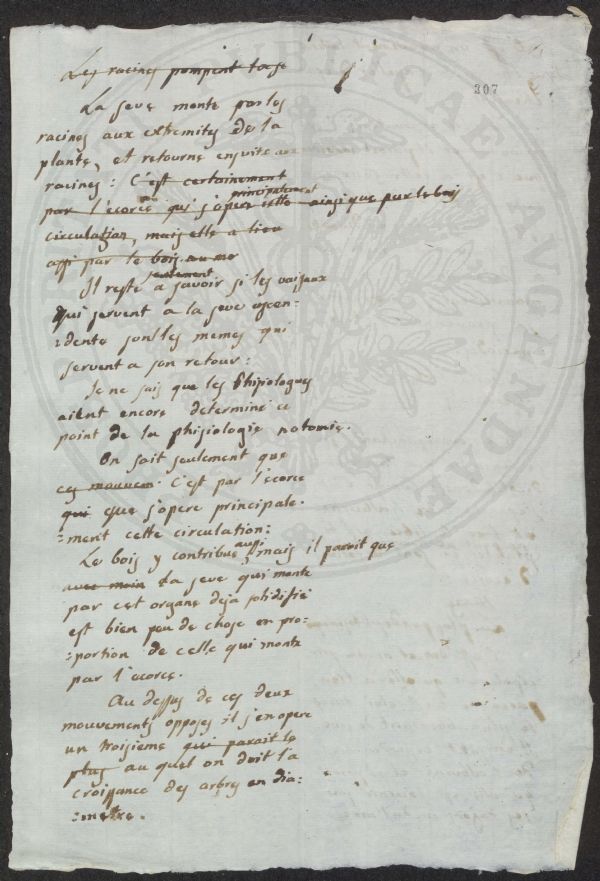 Les racines pompent
307
La seve monte par les
racines aux extremites de la
plante, et retourne ensuite aux
racines: C'est certainement
principalement
par l'écorce qui s'opere cette ainsi que par le bois
circulation, mais elle a lieu
assi par le bois
seulement
Il reste a savoir si les vaisseaux
qui servent a la seve ascen-
:dente sont les memes qui
servent a son retour:
Je ne sais que les Phisiologues
aient encore determiné ce
point de la phisiologie natomie.
On sait seulement que
ces mouvem. C'est par l'écorce
qui que s'opere principale-
:ment cette circulation:
aussi
Le bois y contribue, mais il paroit que
avec moin La seve qui monte
par cet organe deja solidifié
est bien peu de chose en pro-
:portion de celle qui monte
par l'écorce.
Au dessus de ces deux
mouvements opposes il s'en opere
un troisieme qui parait le
plus au quel on doit la
croissance des arbres en dia-
:metre.